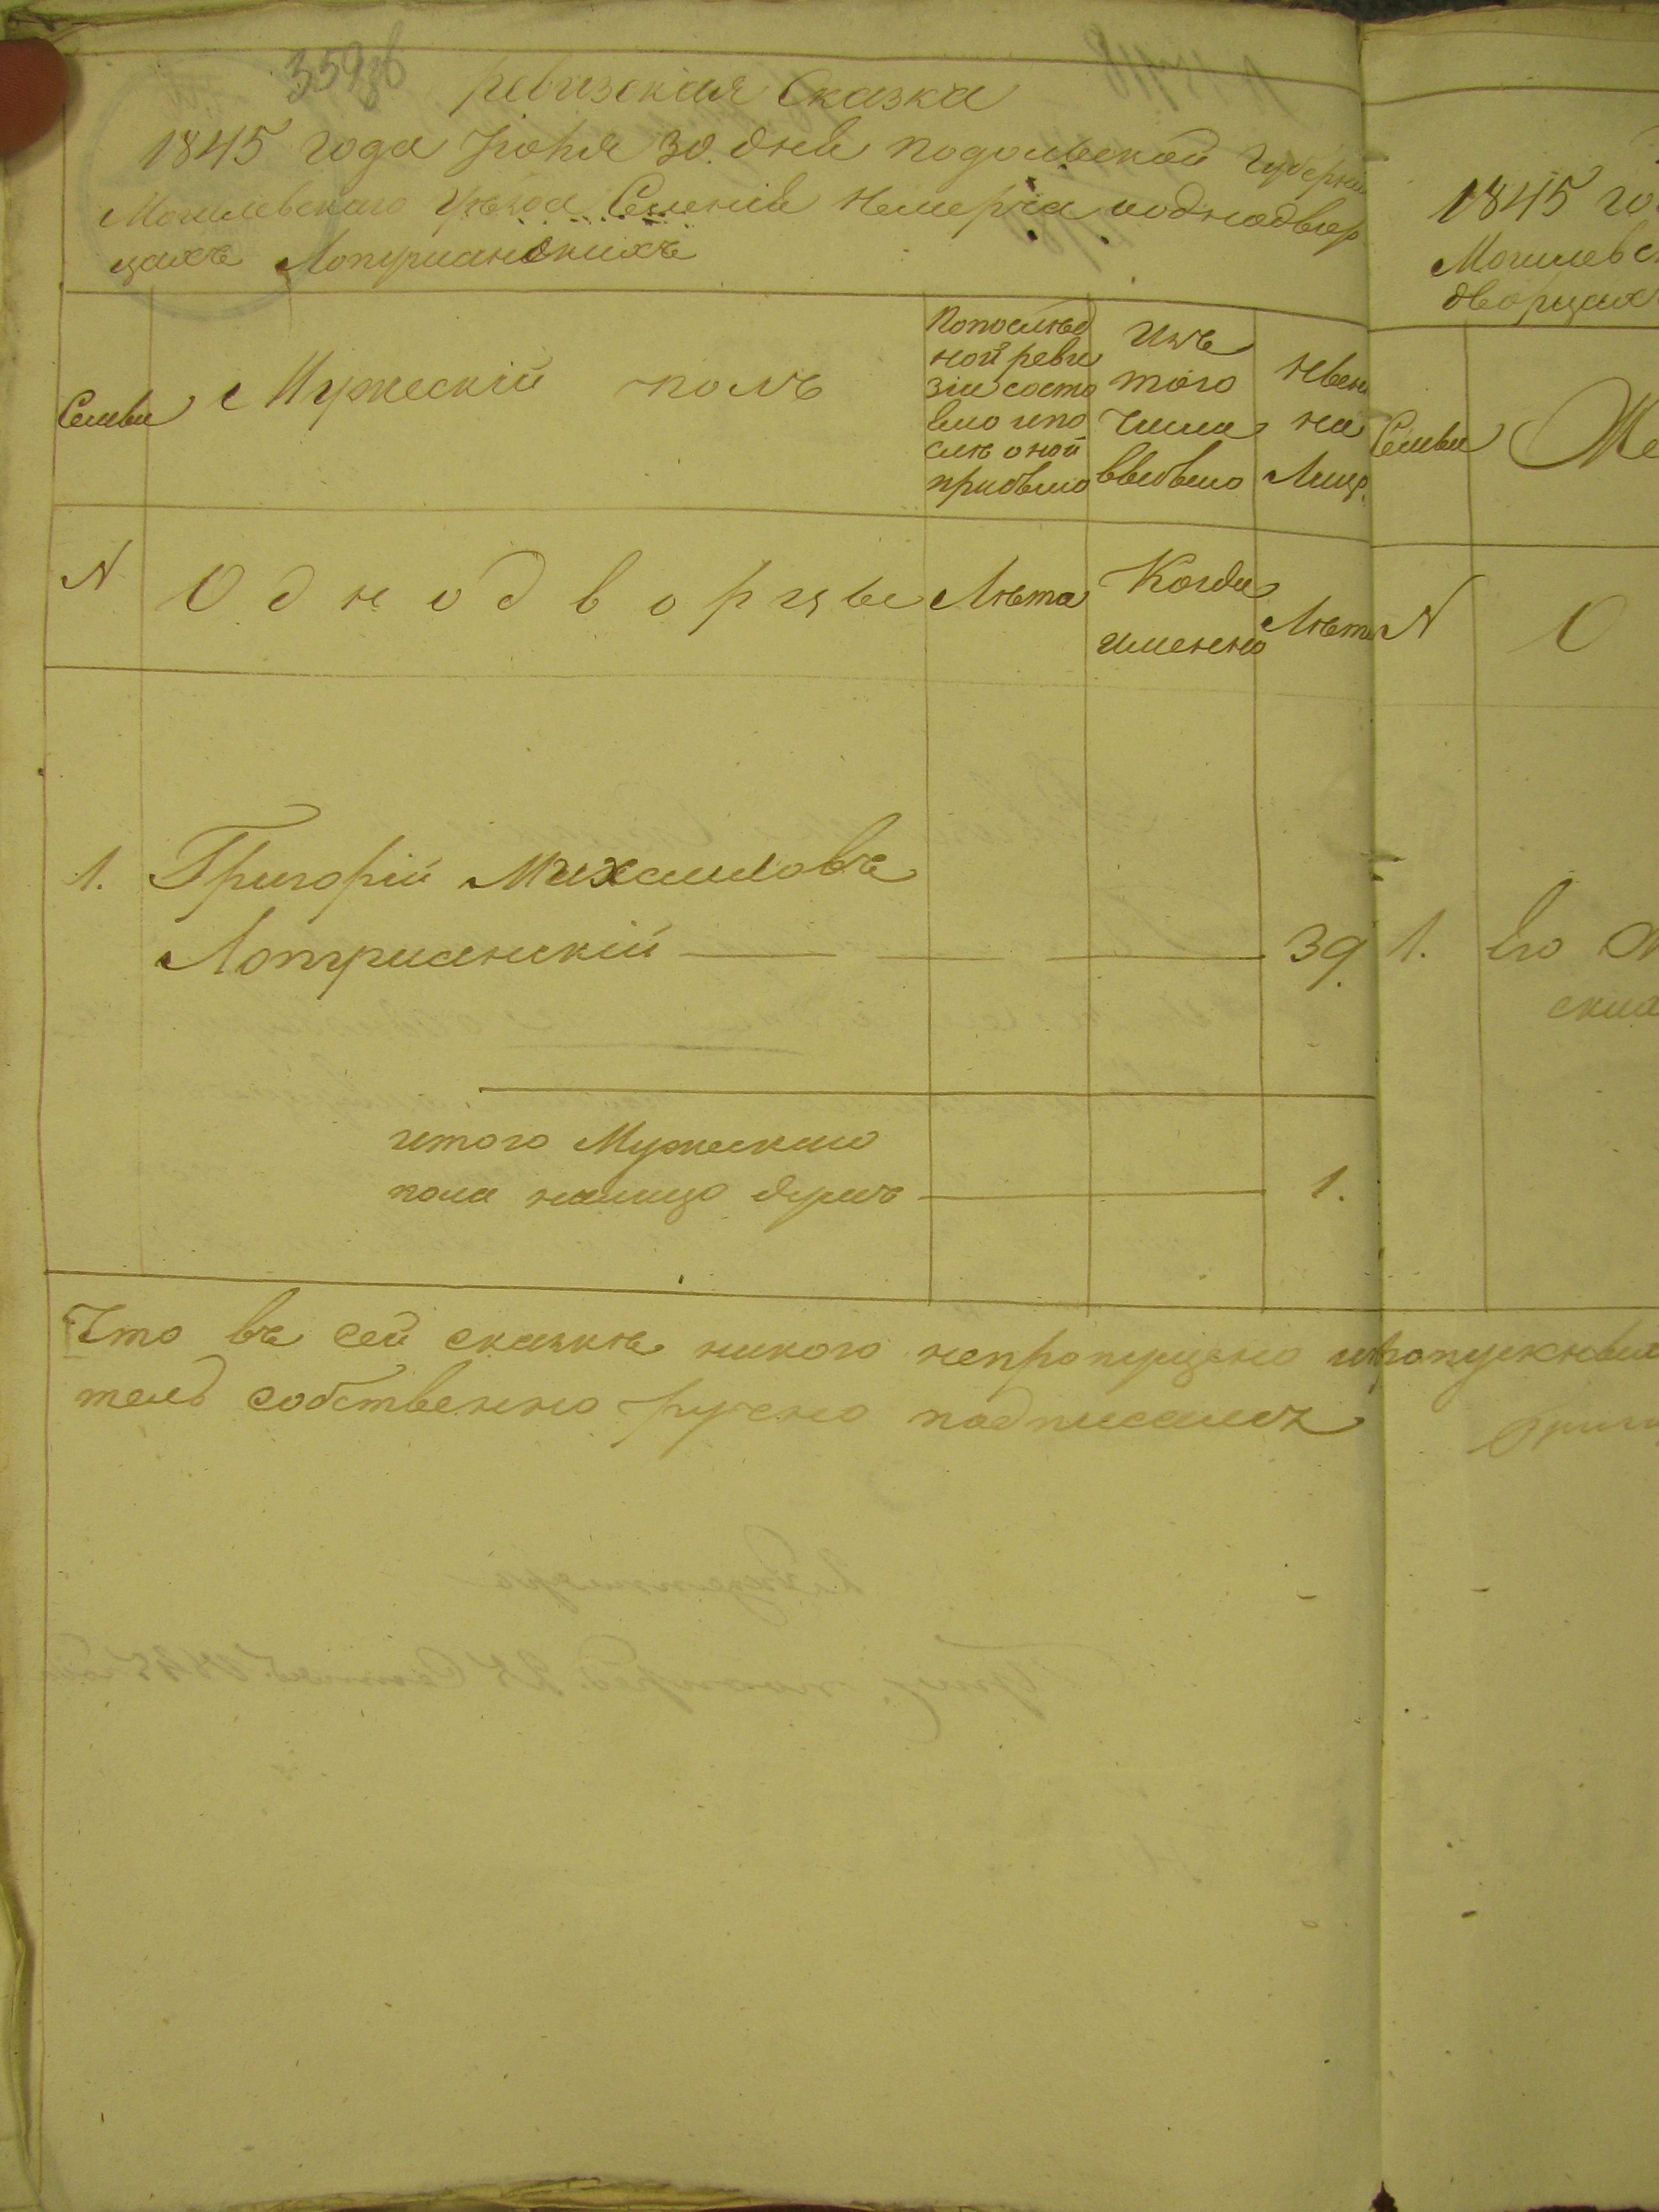 359зв
ревизская Сказка
1845 года Июня 30. дня подольской Губерніи
Могилевскаго Уезда Селенія Немерча ооднодвор
цахъ Лопушанскихъ
Семьи
Мужескій полъ
Попослѣд
ной реви
зіи состо
яло ипо
слѣ оной
прибыло
Изъ
того
Числа
выбыло
Нынѣ
на
Лицо
N
Однодворцы
Лѣта
Когда
именно
Лѣта
1. Григорій Михаиловъ
Лопушанскій 39.
итого Мужескаго
пола налицо душъ 1.
Что въ сей сказкѣ никого непропущено
собственно ручно подписался
1845 го
Могилевс
дворцахъ
Семьи
Же
N
О
1. Его
ския